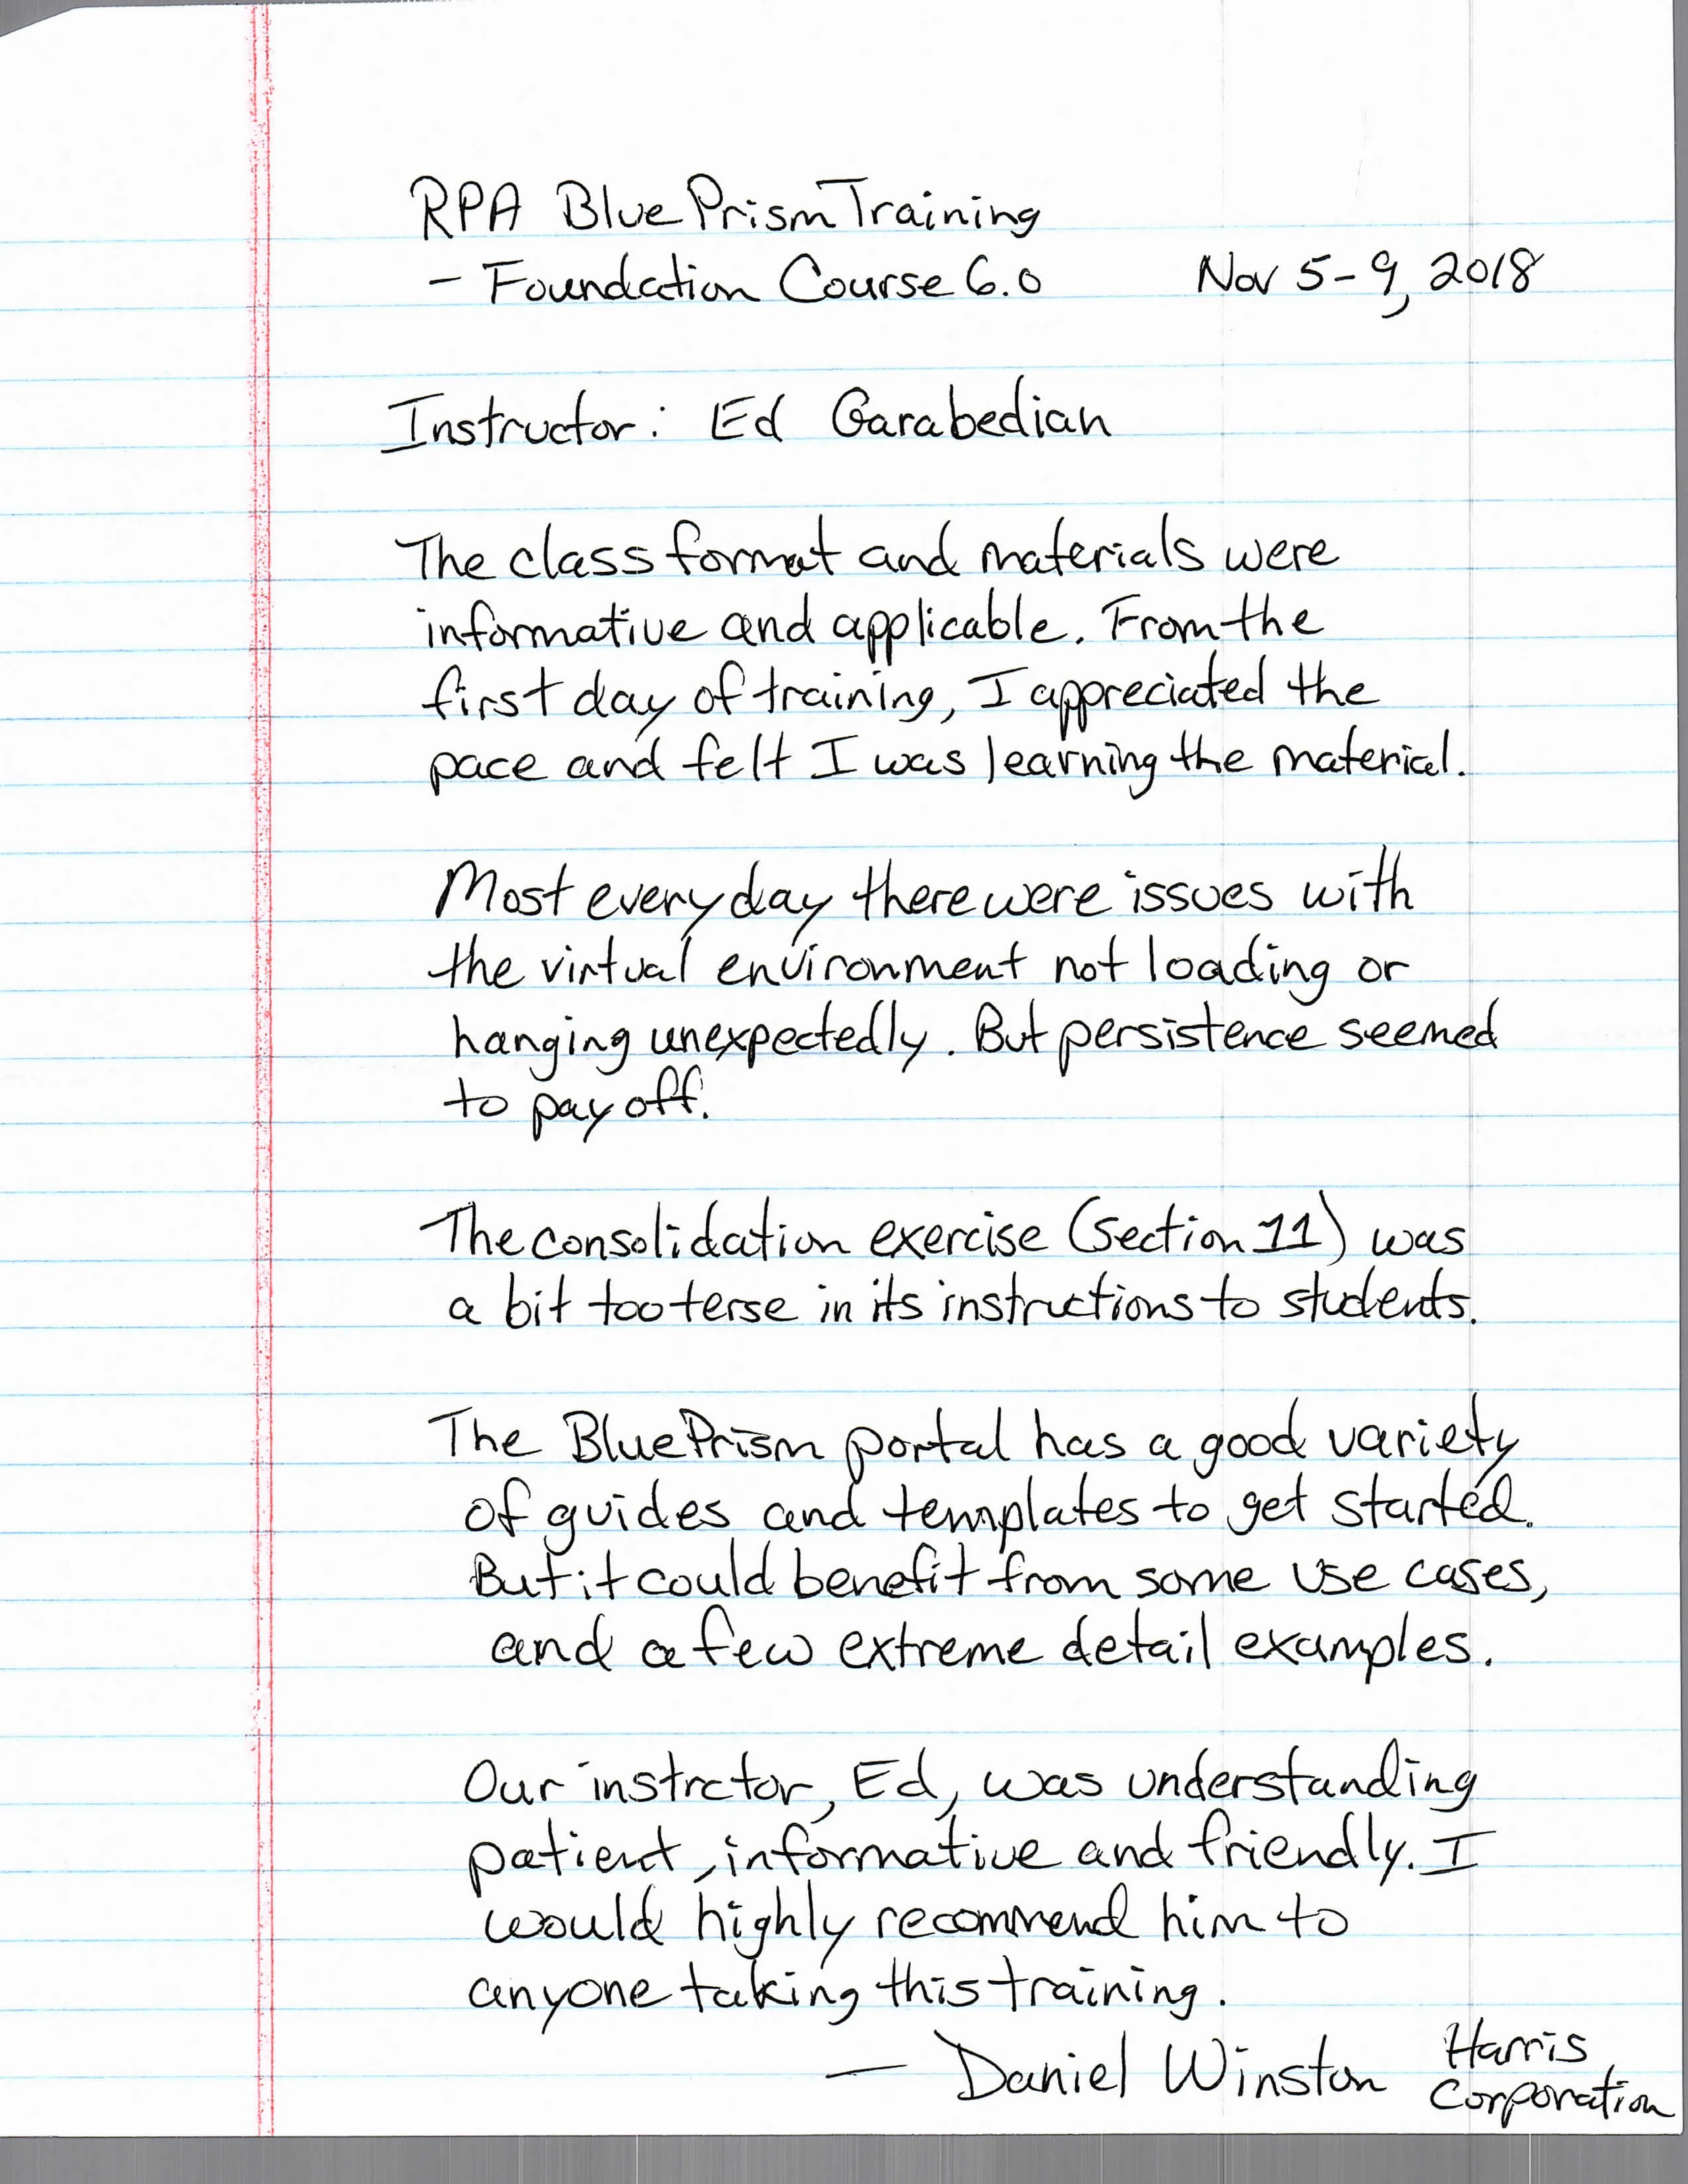 RPA Blue Prism Training
- Foundation Course 6.0 Nov 5-9, 2018
Instructor: Ed Garabedian
The class format and materials were
informative and applicable. From the
first day of training, I appreciated the
pace and felt I was learning the material.
Most every day there were issues with
the virtual environment not loading or
hanging unexpectedly. But persistence seemed
to pay off.
The consolidation exercise (section 11) was
a bit too terse in its instructions to students.
The Blue Prism portal has a good variety
of guides and templates to get started.
But it could benefit from some use cases,
and a few extreme detail examples.
Our instrctor, Ed, was understanding
patient, informative and friendly. I
would highly recommend him to
anyone taking this training.
— Daniel Winston
Harris
Corporation